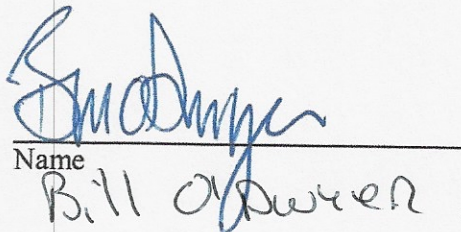 Name
Bill O'Dwyer